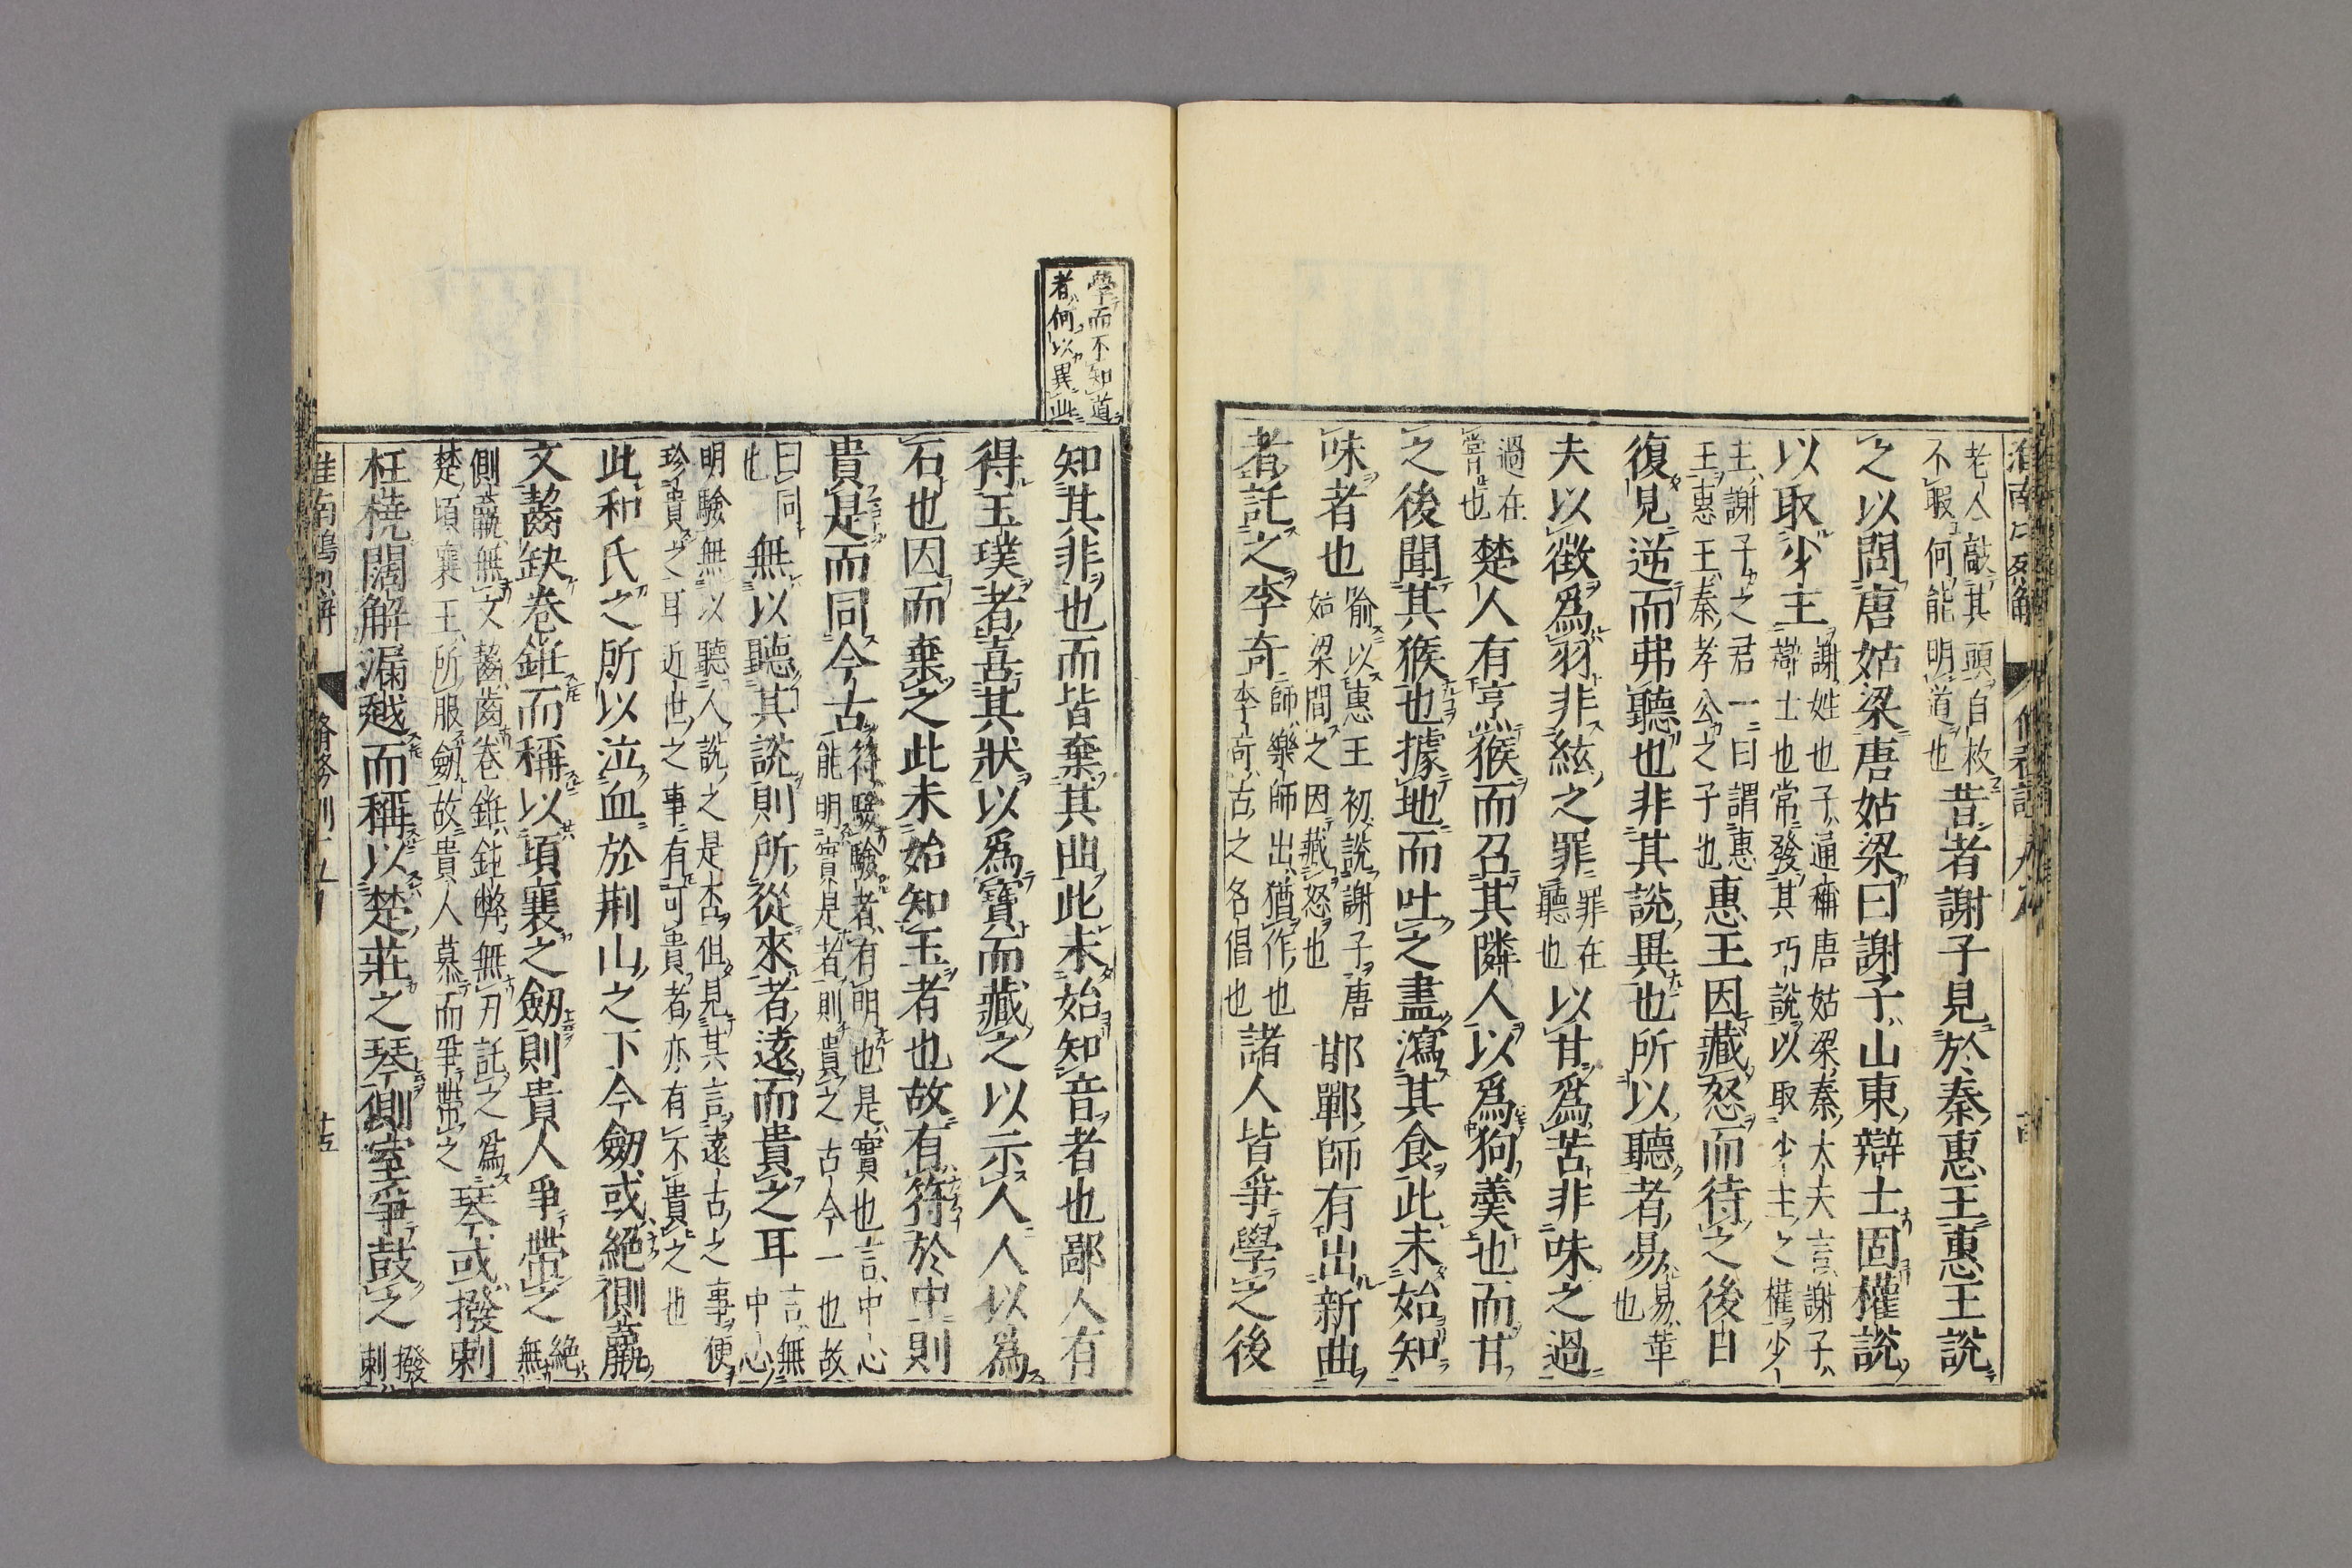 老人敲其頭自救
不暇何能明道也
昔者謝子見於秦惠王惠王說
之以問唐姑梁唐姑梁曰謝子山東辯士固權說
以取少主
謝姓也子通稱唐姑梁秦大夫言謝子
辯士也常發其巧說以取少主之權少
主謝子之君一曰謂惠
王惠王秦孝公之子也
惠王因藏怒而待之後日
復見逆而弗聽也非其說異也所以聽者易
易革
也
夫以徵爲羽非絃之罪
罪在
聽也
以甘爲苦非味之過
過在
嘗也
楚人有烹猴而召其隣人以爲狗羹也而甘
之後聞其猴也據地而吐之盡瀉其食此未始知
味者也
喻以惠王初說謝子唐
姑梁間之因藏怒也
邯鄲師有出新曲
者託之李奇
師樂師出猶作也
李奇古之名倡也
諸人皆爭學之後
學而不知道
者何以異此
知其非也而皆棄其曲此未始知音者也鄙人有
得玉璞者喜其狀以爲寶而藏之以示人人以爲
石也因而棄之此未始知玉者也故有符於中則
貴是而同今古
符驗驗者有明也是實也言中心
能明實是者則貴之古今一也故
曰同
也
無以聽其說則所從來者遠而貴之耳
言無
中心
明驗無以聽人說之是否但見其言遠古之事便
珍貴之耳近世之事有可貴者亦有不貴之也
此和氏之所以泣血於荆山之下今劒或絕側羸
文齧缺卷銋而稱以頃襄之劒則貴人爭帶之
絕
無
側羸無文齧齒卷銋鈍弊無刃託之爲
楚頃襄王所服劒故貴人慕而爭帶之
琴或撥剌
枉橈闊解漏越而稱以楚莊之琴側室爭鼓之
撥
剌
淮南鴻烈解 脩務訓十九 十五